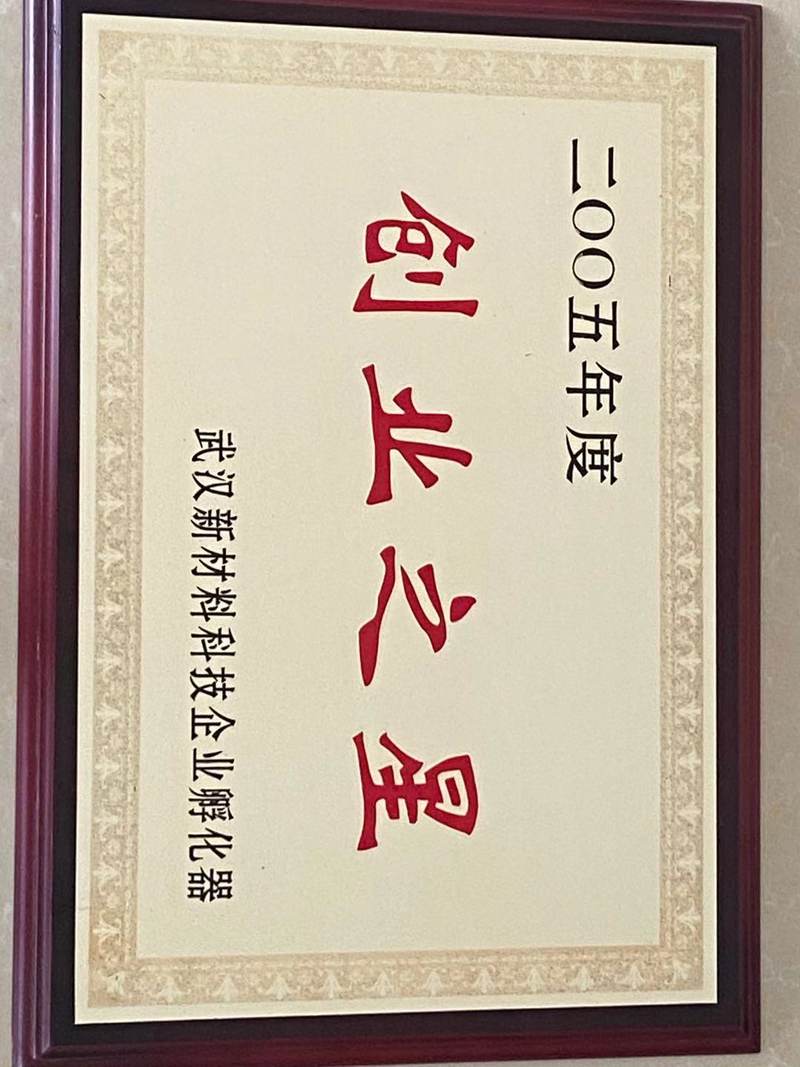 二〇〇五年度
创业之星
武汉新材料科技企业孵化器